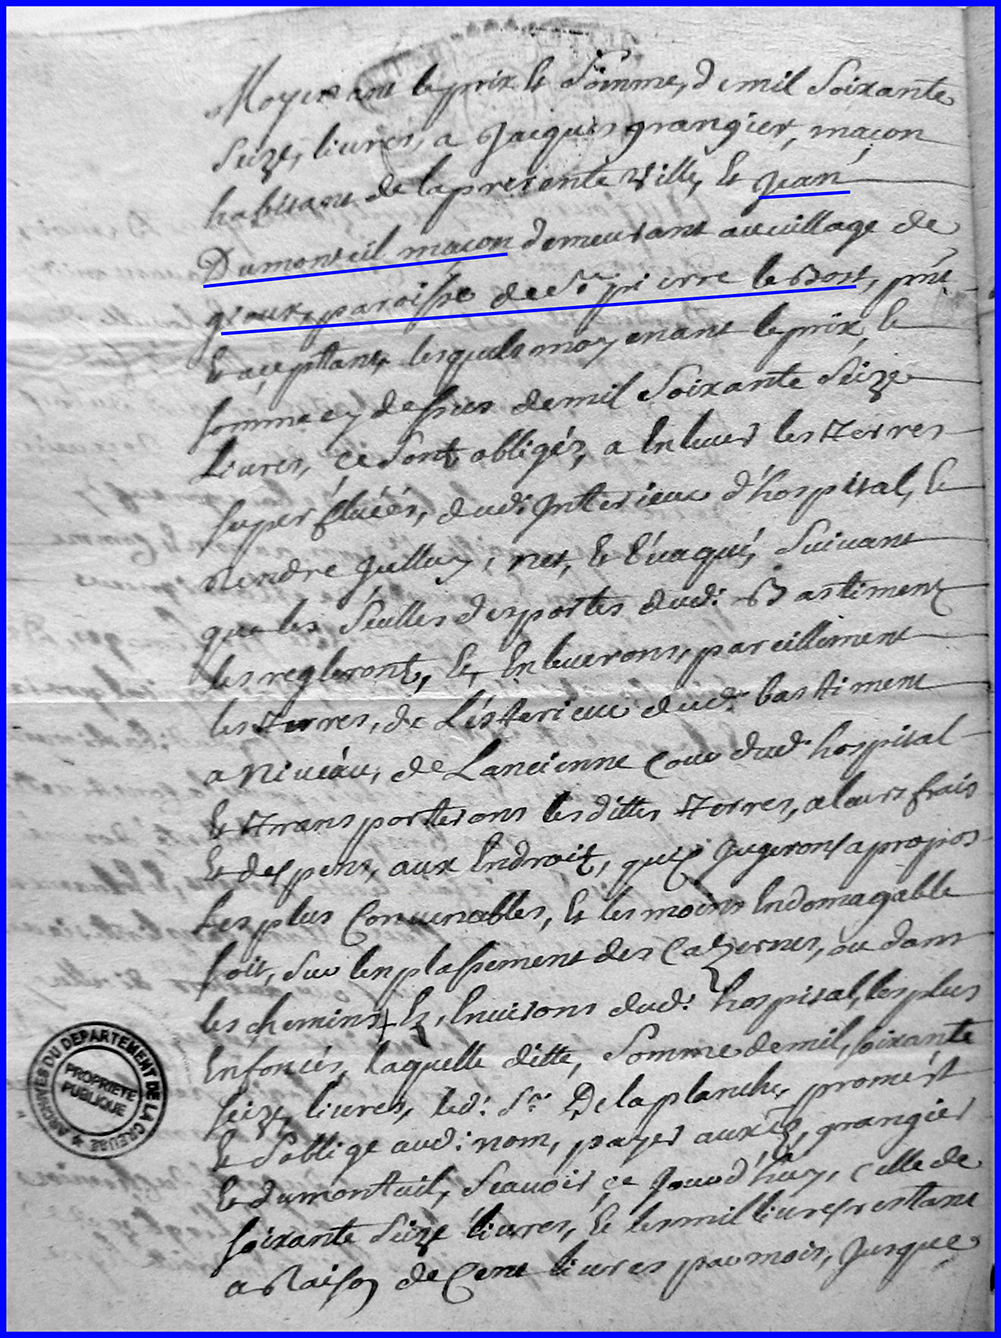 Moyenant le prix & Somme, de mil Soixante
Seize, livres, a Jacques grangier, maçon
habitant de la presente Ville, & Jean
Dumonteil maçon demeurant au village de
gioux, paroisse de St pierre le Bost, pnt
& acceptant, lesquels moyenant le prix, &
somme cy dessus de mil Soixante Seize
Livres, ce sont, obligéz, a Enlever les terres
superflüées, dudt Interieur d'hospital, &
rendre Jcelluy, net, & Evaqué, Suivant
que les Seulles des portes dudt Bastiment
les regleront, & Enleveront, pareillement
les terres, de L'exterieur dudt bastiment
a Niveau, de Lancienne Cour dudt hospital
& transporterons les dittes terres, a leurs frais
& despens, aux Endroit, quil Jugerons apropos
Les plus Convenables, & les moins Endomagable
soit, Sur lenplassement des Cazernes, ou dans
les chemins & Environs dudt hospital, les plus
Enfoncés, laquelle ditte, Somme de mil, soixante
seize livres, ledt Sr Delaplanche, promest
& Soblige audt nom, payer auxds, grangier
& dumonteuil, Scavoir, ce Jourd'huy, celle de
soixante Seize livres, & les mil livres restant
a Raison de Cent livres par mois, Jusque
ARCHIVES DU DEPARTEMENT DE LA CREUSE
PROPRIETE
PUBLIQUE